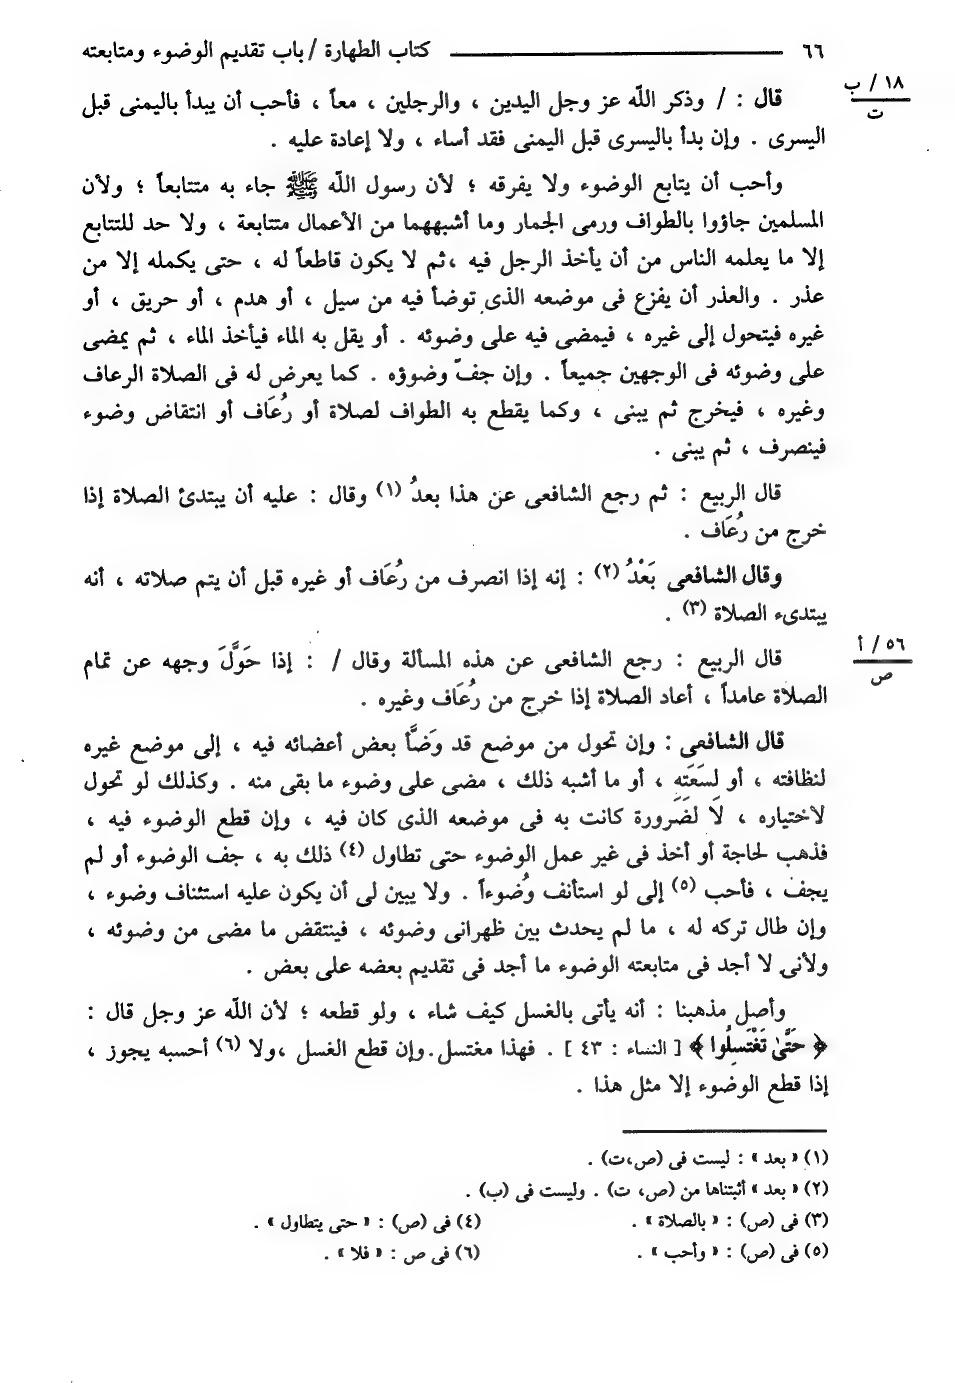 ٦٦ ــــــــــــــــــ كتاب الطهارة / باب تقديم الوضوء ومتابعته
١٨ / ب
ت
قال : / وذكر اللّه عز وجل اليدين ، والرجلين ، معاً ، فأحب أن يبدأ باليمنى قبل
اليسرى . وإن بدأ باليسرى قبل اليمنى فقد أساء ، ولا إعادة عليه .
وأحب أن يتابع الوضوء ولا يفرقه ؛ لأن رسول اللّه ﷺ جاء به متتابعاً ؛ ولأن
المسلمين جاؤوا بالطواف ورمى الجمار وما أشبههما من الأعمال متتابعة ، ولا حد للتتابع
إلا ما يعلمه الناس من أن يأخذ الرجل فيه ،ثم لا يكون قاطعاً له ، حتى يكمله إلا من
عذر . والعذر أن يفزع فى موضعه الذى توضأ فيه من سيل ، أو هدم ، أو حريق ، أو
غيره فيتحول إلى غيره ، فيمضى فيه على وضوئه . أو يقل به الماء فيأخذ الماء ، ثم يمضى
على وضوئه فى الوجهين جميعاً . وإن جفّ وضوؤه . كما يعرض له فى الصلاة الرعاف
وغيره ، فيخرج ثم يبنى ، وكما يقطع به الطواف لصلاة أو رُعَاف أو انتقاض وضوء
فينصرف ، ثم يبنى .
قال الربيع : ثم رجع الشافعى عن هذا بعدُ (١) وقال : عليه أن يبتدئ الصلاة إذا
خرج من رُعَاف .
وقال الشافعى بَعْدُ (٢) : إنه إذا انصرف من رُعَاف أو غيره قبل أن يتم صلاته ، أنه
يبتدىء الصلاة (٣) .
٥٦ / أ
ص
قال الربيع : رجع الشافعى عن هذه المسألة وقال / : إذا حَوَّلَ وجهه عن تمام
الصلاة عامداً ، أعاد الصلاة إذا خرج من رُعَاف وغيره .
قال الشافعى : وإن تحول من موضع قد وَضَّأ بعض أعضائه فيه ، إلى موضع غيره
لنظافته ، أو لسَعَتِه ، أو ما أشبه ذلك ، مضى على وضوء ما بقى منه . وكذلك لو تحول
لاختياره ، لَا لضَرورة كانت به فى موضعه الذى كان فيه ، وإن قطع الوضوء فيه ،
فذهب لحاجة أو أخذ فى غير عمل الوضوء حتى تطاول (٤) ذلك به ، جف الوضوء أو لم
يجف ، فأحب (٥) إلى لو استأنف وُضوءاً . ولا يبين لى أن يكون عليه استئناف وضوء ،
وإن طال تركه له ، ما لم يحدث بين ظهرانى وضوئه ، فينتقض ما مضى من وضوئه ،
ولأنى لا أجد فى متابعته الوضوء ما أجد فى تقديم بعضه على بعض .
وأصل مذهبنا : أنه يأتى بالغسل كيف شاء ، ولو قطعه ؛ لأن اللّه عز وجل قال :
﴿ حَتَّىٰ تَغْتَسِلُوا ﴾ [ النساء : ٤٣ ] . فهذا مغتسل.وإن قطع الغسل ،ولا (٦) أحسبه يجوز ،
إذا قطع الوضوء إلا مثل هذا .
(١) « بعد » : ليست فى (ص،ت) .
(٢) « بعد » أثبتناها من (ص، ت) . وليست فى (ب) .
(٣) فى (ص) : « بالصلاة » . (٤) فى (ص) : « حتى يتطاول » .
(٥) فى (ص) : « وأحب » . (٦) فى ص : « فلا » .